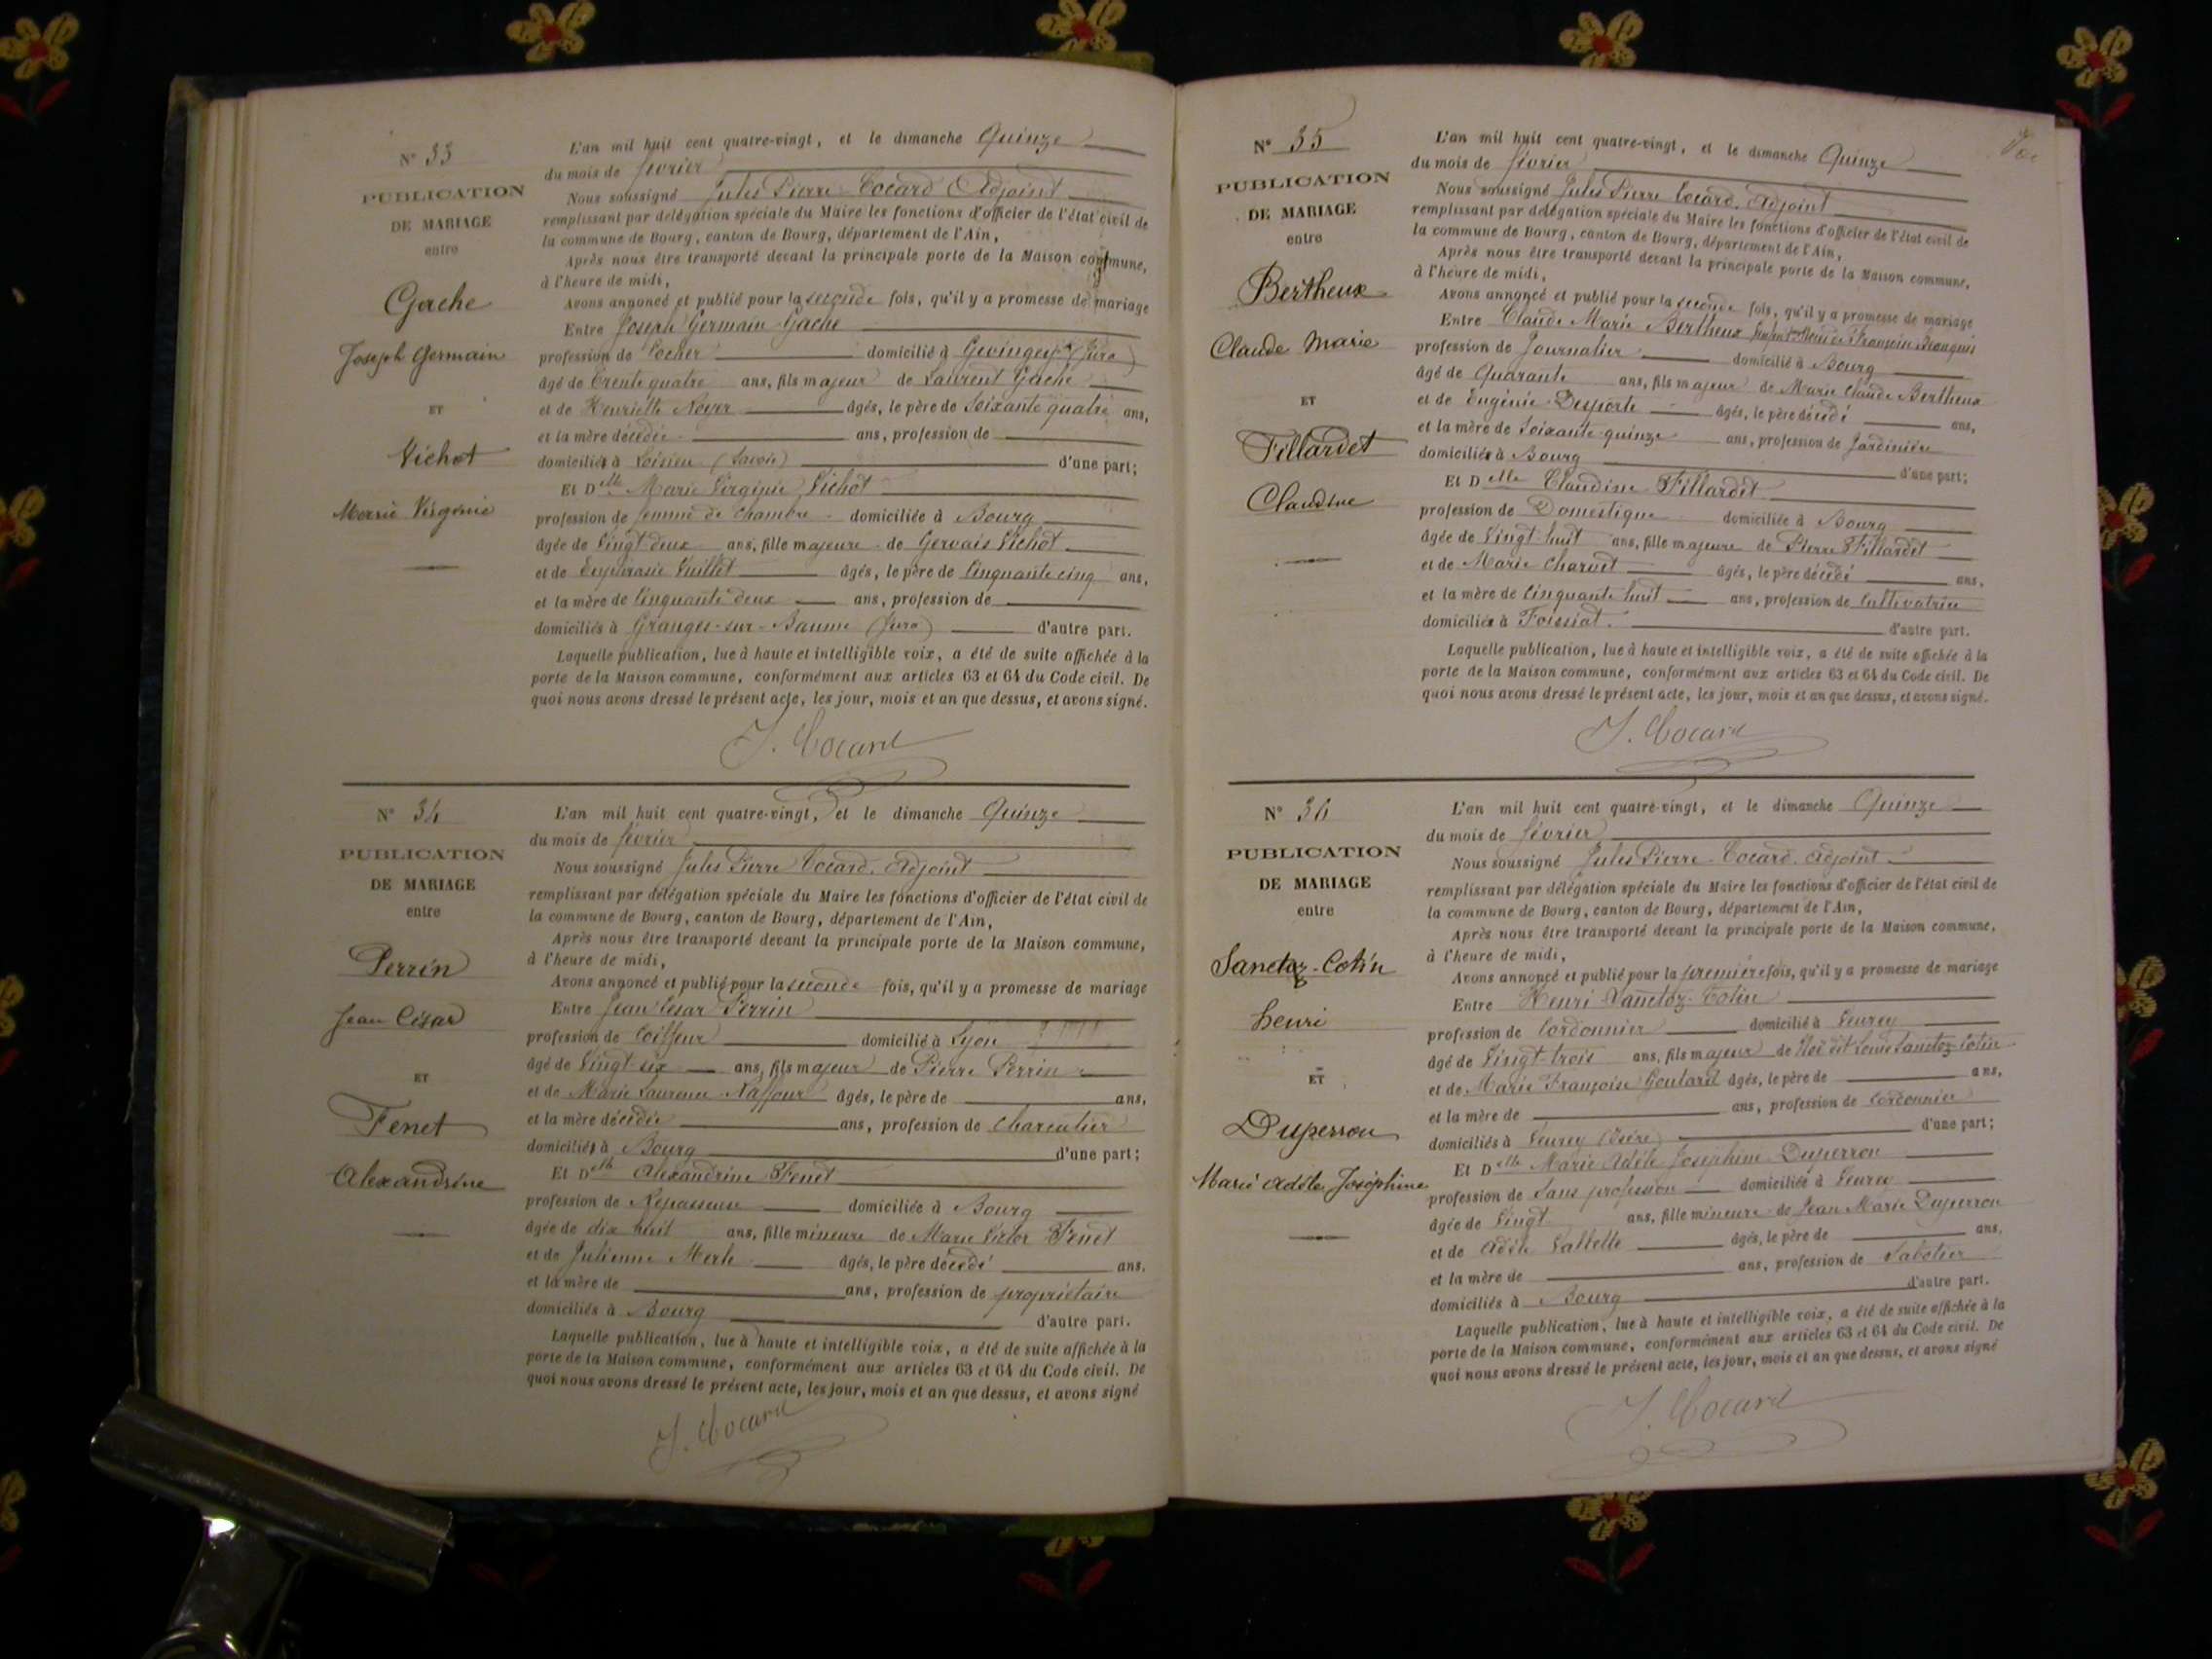 N° 33
PUBLICATION
DE MARIAGE
entre
Gache
Joseph Germain
ET
Vichot
Marie Virginie
L'an mil huit cent quatre-vingt, et le dimanche Quinze
du mois de février
Nous soussigné Jules Pierre Cocard Adjoint
remplissant par délégation spéciale du Maire les fonctions d'officier de l'état civil de
la commune de Bourg, canton de Bourg, département de l'Ain,
Après nous être transporté devant la principale porte de la Maison commune,
à l'heure de midi,
Avons annoncé et publié pour la seconde fois, qu'il y a promesse de mariage
Entre Joseph Germain Gache
profession de Cocher domicilié à Gevingey (Jura)
âgé de trente quatre ans, fils majeur de Laurent Gache
et de Henriette Noyer âgés, le père de soixante quatre ans,
et la mère décédée ans, profession de
domiciliés à Loisieu (Savoie) d'une part;
Et Delle Marie Virginie Vichot
profession de femme de chambre domiciliée à Bourg
âgée de vingt deux ans, fille majeure de Gervais Vichot
et de Euphrasie Vuillet âgés, le père de cinquante cinq ans,
et la mère de cinquante deux ans, profession de
domiciliés à Granges-sur-Baume (Jura) d'autre part.
Laquelle publication, lue à haute et intelligible voix, a été de suite affichée à la
porte de la Maison commune, conformément aux articles 63 et 64 du Code civil. De
quoi nous avons dressé le présent acte, les jour, mois et an que dessus, et avons signé.
J. Cocard
N° 34
PUBLICATION
DE MARIAGE
entre
Perrin
Jean César
ET
Fenet
Alexandrine
L'an mil huit cent quatre-vingt, et le dimanche Quinze
du mois de février
Nous soussigné Jules Pierre Cocard, Adjoint
remplissant par délégation spéciale du Maire les fonctions d'officier de l'état civil de
la commune de Bourg, canton de Bourg, département de l'Ain,
Après nous être transporté devant la principale porte de la Maison commune,
à l'heure de midi,
Avons annoncé et publié pour la seconde fois, qu'il y a promesse de mariage
Entre Jean César Perrin
profession de Coiffeur domicilié à Lyon
âgé de vingt six ans, fils majeur de Pierre Perrin
et de Marie Laurence âgés, le père de ans,
et la mère décédée ans, profession de charcutier
domiciliés à Bourg d'une part;
Et Delle Alexandrine Fenet
profession de Repasseuse domiciliée à Bourg
âgée de dix huit ans, fille mineure de Marie Victor Fenet
et de Julienne Merle âgés, le père décédé ans.
et la mère de ans, profession de propriétaire
domiciliés à Bourg d'autre part.
Laquelle publication, lue à haute et intelligible voix, a été de suite affichée à la
porte de la Maison commune, conformément aux articles 63 et 64 du Code civil. De
quoi nous avons dressé le présent acte, les jour, mois et an que dessus, et avons signé
J. Cocard
N° 35
PUBLICATION
DE MARIAGE
entre
Bertheux
Claude Marie
ET
Fillardet
Claudine
L'an mil huit cent quatre-vingt, et le dimanche Quinze
du mois de février
Nous soussigné Jules Pierre Cocard, Adjoint
remplissant par délégation spéciale du Maire les fonctions d'officier de l'état civil de
la commune de Bourg, canton de Bourg, département de l'Ain,
Après nous être transporté devant la principale porte de la Maison commune,
à l'heure de midi,
Avons annoncé et publié pour la seconde fois, qu'il y a promesse de mariage
Entre Claude Marie Bertheux
profession de Journalier domicilié à Bourg
âgé de Quarante ans, fils majeur de Marie Claude Bertheux
et de Eugénie Desporte âgés, le père décédé ans,
et la mère de soixante quinze ans, profession de Jardinière
domiciliés à Bourg d'une part;
Et Delle Claudine Fillardet
profession de Domestique domiciliée à Bourg
âgée de vingt huit ans, fille majeure de Pierre Fillardet
et de Marie Charvet âgés, le père décédé ans,
et la mère de cinquante huit ans, profession de Cultivatrice
domiciliés à Foissiat. d'autre part.
Laquelle publication, lue à haute et intelligible voix, a été de suite affichée à la
porte de la Maison commune, conformément aux articles 63 et 64 du Code civil. De
quoi nous avons dressé le présent acte, les jour, mois et an que dessus, et avons signé.
J. Cocard
N° 36
PUBLICATION
DE MARIAGE
entre
Sanctoz-Cotin
henri
ET
Duperron
Marie Adèle Joséphine
L'an mil huit cent quatre-vingt, et le dimanche Quinze
du mois de février
Nous soussigné Jules Pierre Cocard, adjoint
remplissant par délégation spéciale du Maire les fonctions d'officier de l'état civil de
la commune de Bourg, canton de Bourg, département de l'Ain,
Après nous être transporté devant la principale porte de la Maison commune,
à l'heure de midi,
Avons annoncé et publié pour la première fois, qu'il y a promesse de mariage
Entre Henri Sanctoz-Cotin
profession de Cordonnier domicilié à Veurey
âgé de vingt trois ans, fils majeur de dit Louis Sanctoz-Cotin
et de Marie Françoise Goulard âgés, le père de ans,
et la mère de ans, profession de Cordonnier
domiciliés à Veurey (Isère) d'une part;
Et Delle Marie Adèle Joséphine Duperron
profession de Sans profession domiciliée à Veurey
âgée de Vingt ans, fille mineure de Jean Marie Duperron
et de Adèle Vallette âgés, le père de ans.
et la mère de ans, profession de Sabotier
domiciliés à Bourg d'autre part.
Laquelle publication, lue à haute et intelligible voix, a été de suite affichée à la
porte de la Maison commune, conformément aux articles 63 et 64 du Code civil. De
quoi nous avons dressé le présent acte, les jour, mois et an que dessus, et avons signé
J. Cocard